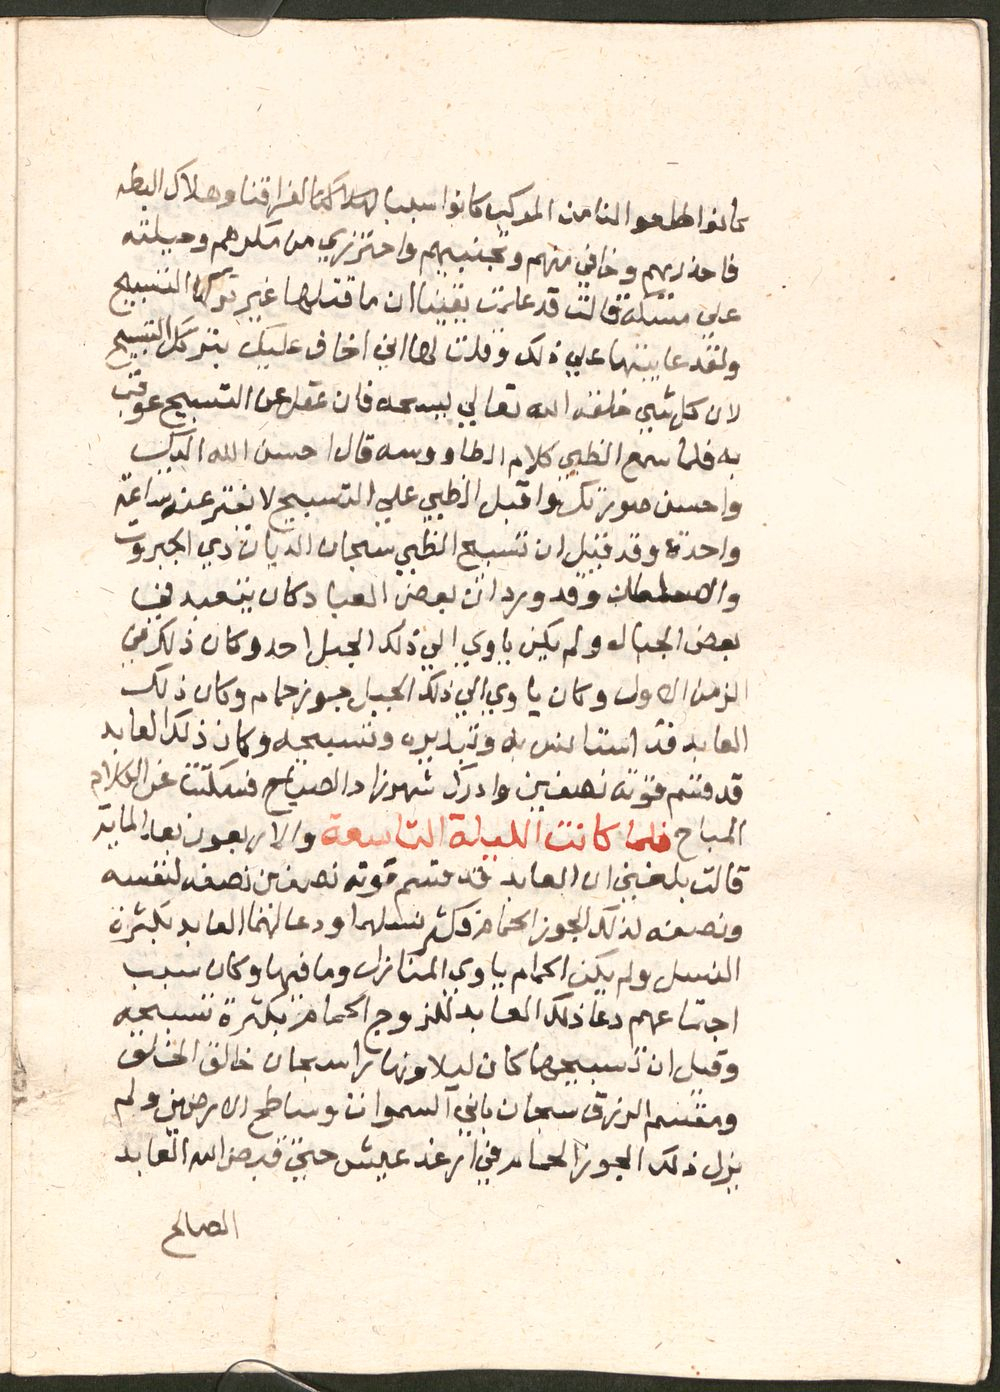 كانوا طلعوا لنا من المركب كانوا سببا لفراقنا وهلاك البطه
فاحذريهم وخافي منهم وتجنبيهم واحترزي من مكرهم وحيلته
علي مثلك قالت قد علمت يقينا ان ما قتلها غير تركها التسبيح
ولقد عاتبتها علي ذلك وقلت لها اني اخاف عليك بترك التسبيح
لان كل شي خلقه الله تعالي يسبحه فان غفل عن التسبيح عوقب
به فلما سمع الظبي كلام الطاووسه قال احسن الله اليك
واحسن صورتك واقبل الظبي علي التسبيح لا يفتر عنه ساعة
واحدة وقد قيل ان تسبيح الظبي سبحان الديان ذي الجبروت
والسلطان وقد ورد ان بعض العباد كان يتعبد في
بعض الجبال ولم يكن ياوي الي ذلك الجبل احد وكان ذلك في
الزمن الاول وكان ياوي الي ذلك الجبل جوز حمام وكان ذلك
العابد قد استانس به وتسبيحه وكان ذلك العابد
قد قسم قوته نصفين وادرك شهرزاد الصباح فسكتت عن الكلام
المباح فلما كانت الليلة التاسعة والاربعون بعد الماية
قالت بلغني ان العابد قد قسم قوته نصفين نصفه لنفسه
ونصفه لذلك الجوز الحمام وكثر نسلهما ودعا لهما العابد بكثرة
النسل ولم يكن الحمام ياوي المنازل وما فيها وكان سبب
اجتماعهم دعا ذلك العابد للزوج الحمام بكثرة تسبيحه
وقيل ان تسبيحها كان ليلا ونهارا سبحان خالق الخلق
ومقسم الرزق سبحان باني السموات وساطح الارضين ولم
يزل ذلك الجوز الحمام في ارغد عيش حتي قبض الله العابد
الصالح